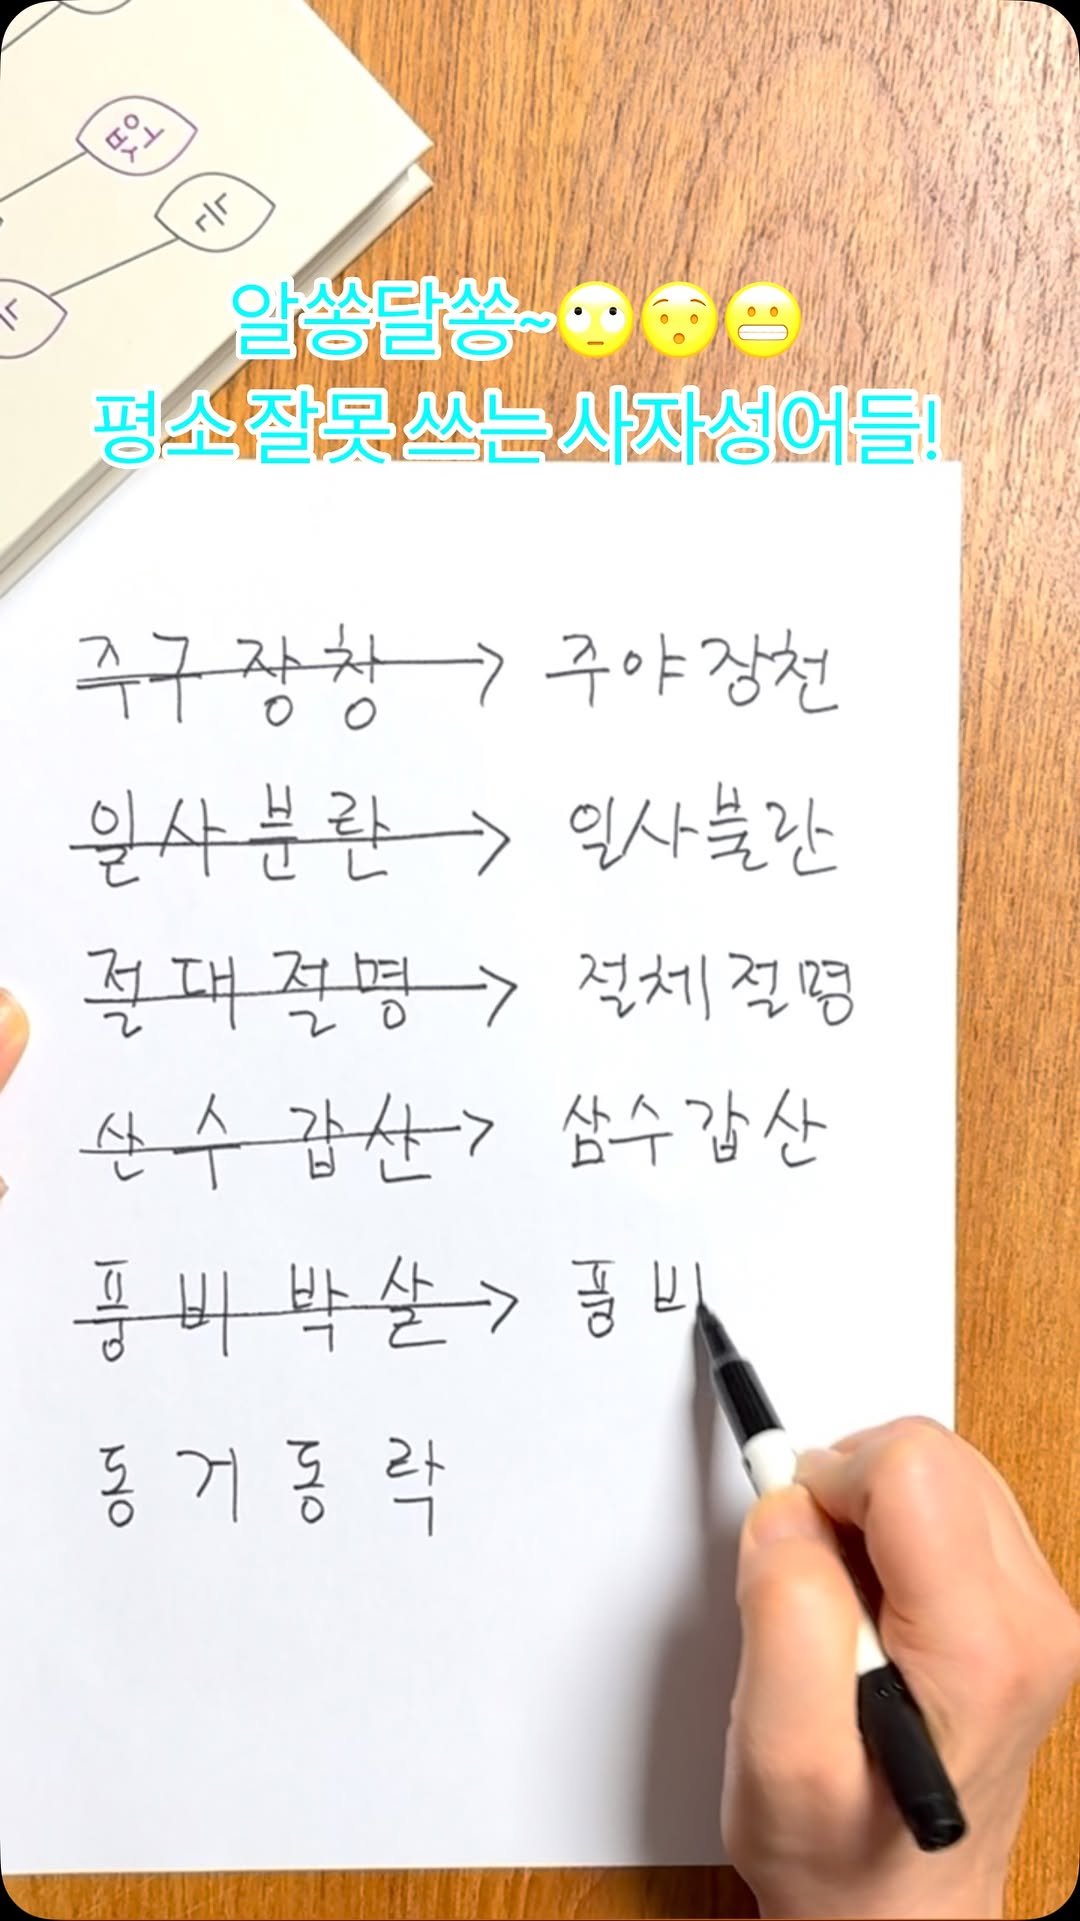 벚꽃
알쏭달쏭~🙄😯😬
평소 잘못 쓰는 사자성어들!
주구장창 → 주야장천
일사분란 → 일사불란
절대절명 → 절체절명
산수갑산 → 삼수갑산
풍비박살 → 풍비
동거동락